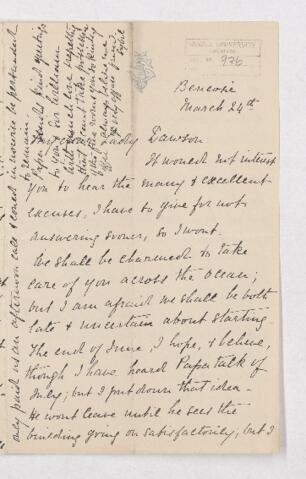 McGILL UNIVERSITY
976
Bencosie
March 24th
My dear Lady Dawson
It would not interest
you to hear the many & excellent
excuses, I have to give for not
answering sooner, so I wont.
We shall be charmed to take
care of you across the ocean;
but I am afraid we shall be both
late & uncertain about starting.
The end of June, I hope, & believe,
though I have heard Papa talk of
July; but I put down that idea.
He wont leave until he sees the
building going on satisfactorily; but I
only paid us an afternoon call & could in nowise be persuaded
to remain.
Papa sends kind greetings
to you & Sir William
that I take possession
of the room you so kindly
offer & always believe me
very affec. friend
Sybil